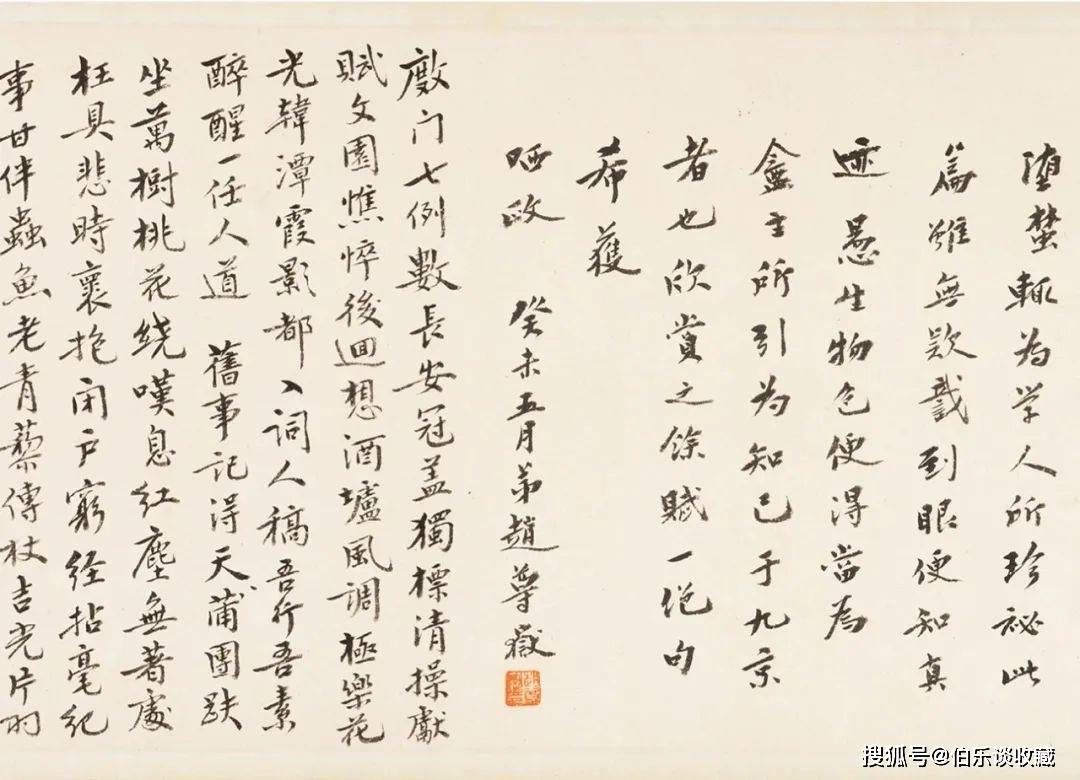 堕蛰輒为学人所珍祕此
篇雖無款識到眼便知真
迹愚生物色便得當為
盦主所引为知己于九京
者也欣賞之餘賦一绝句
希获
哂政 癸未五月弟趙尊嶽
廠门七例數長安冠盖獨標清操獻
賦文園憔悴後迴想酒壚風調極樂花
光韓潭霞影都入詞人稿吾行吾素
醉醒一任人道 舊事记淂天蒲團趺
坐萬樹桃花绕嘆息红塵無著處
枉具悲時褱抱闭户窮经拈毫纪
事甘伴蟲魚老青藜傳杖吉光片羽
搜狐号@伯乐谈收藏